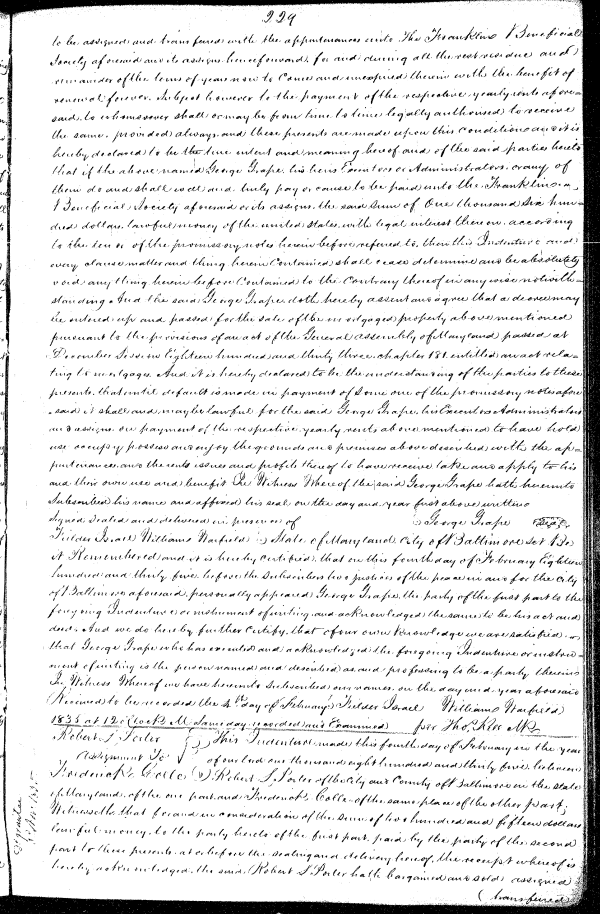 229
to be assigned and transfered with the appurtenances unto The Franklin Beneficial
Society aforesaid and its assigns henceforward, for and during all the rest residue and
remainder of the term of years now to come and unexpired therein with the benefit of
renewal forever. Subject however to the payment of the respective yearly rents afore-
said, to whomsoever shall or may be from time to time legally authorised to receive
the same. provided always and these presents are made upon this condition and it is
hereby declared to be the true intent and meaning hereof and of the said parties hereto
that if the above named George Grape, his heirs Executors or Administrators. or any of
them do and shall well and truly pay or cause to be paid unto the Franklin
Beneficial Society aforesaid or its assigns. the said sum of One thousand Six hun-
dred dollars. lawful money of the united states with legal interest thereon. according
to the tenor of the promissory notes herein before refered to, then this Indenture and
every clause matter and thing herein Contained shall cease determine and be absolutely
void any thing herein before Contained to the Contrary thereof in any wise notwith-
standing. And the said George Grape doth hereby assent and agree that a decree may
be entered up and passed for the sale of the mortgaged property above mentioned
pursuant to the provisions of an act of the General assembly of Maryland passed at
December Session Eighteen hundred and thirty three, chapter 181. entitled an act rela-
ting to mortgages. And it is hereby declared to be the understanding of the parties to these
presents. that until default is made in payment of some one of the promissory notes afore
said it shall and may be lawful for the said George Grape, his Executors Administrators
and assigns on payment of the respective yearly rents above mentioned to have hold
use occupy possess and enjoy the grounds and premises above described with the ap-
purtenances. and the rents issues and profits thereof to have receive take and apply to his
and their own use and benefit In Witness Whereof the said George Grape hath hereunto
Subscribed his name and affixed his seal on the day and year first above written
Signed Sealed and delivered in presence of George Grape Seal
Fielder Israel Williams Warfield State of Maryland City of Baltimore Sct Be
it Remembered and it is hereby certified, that on this fourth day of February Eighteen
hundred and thirty five before the Subscribers two justices of the peace in and for the City
of Baltimore aforesaid, personally appeared George Grape, the party of the first part to the
foregoing Indenture or instrument of writing and acknowledged the same to be his act and
deed. And we do hereby further certify, that of our own knowledge we are satisfied
that George Grape who has executed and acknowledged the foregoing Indenture or instru-
ment of writing is the person named and described as and professing to be a party therein
In Witness Whereof we have hereunto Subscribed our names. on the day and year aforesaid
Received to be recorded the 4th day of February Fielder Israel Williams Warfield
1835 at 12 oClock M Same day recorded and Examined per Thos. Kell Clk
Robert S. Porter This Indenture made this fourth day of February in the year
Assignment To of our Lord one thousand eight hundred and thirty five between
Frederick Colle Robert S, Porter of the City and County of Baltimore in the state
of Maryland. of the one part, and Frederick Colle of the same place of the other part,
Witnesseth that for and in consideration of the sum of two hundred and fifteen dollars
lawful money. to the party hereto of the first part, paid by the party of the second
part to these presents. at or before the sealing and delivery hereof, the receipt whereof is
hereby acknowledged. the said Robert S Porter hath bargained and sold assigned
(transfered